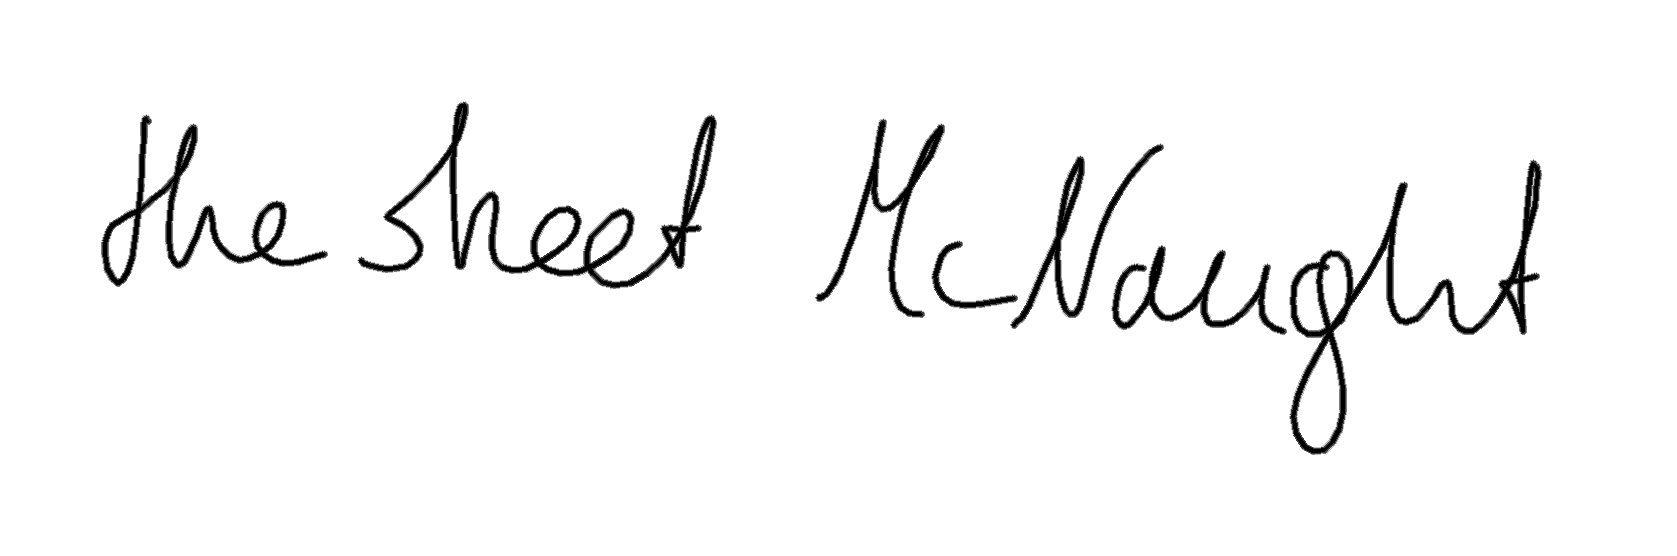 the sheet McNaught